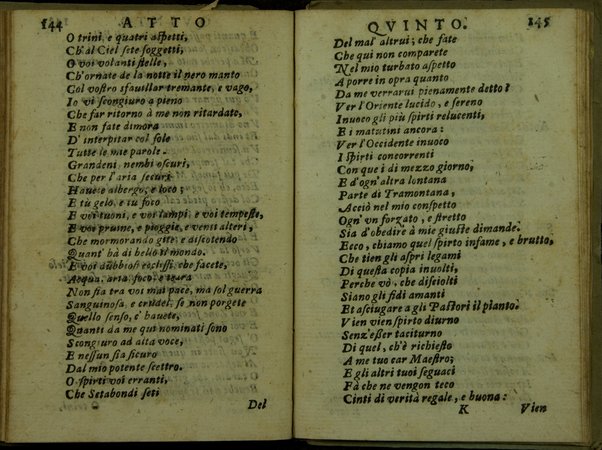 144 ATTO
O trini, e quatri aspetti,
Ch'al Ciel sete soggetti,
O voi volanti stelle,
Ch'ornate de la notte il nero manto
Col vostro sfauillar tremante, e vago,
Io vi scongiuro a pieno
Che far ritorno à me non ritardate,
E non fate dimora
D'interpitar col sole
Tutte le mie parole.
Grandeni nembi oscuri,
Che per l'aria securi
Hauete albergo, e loco;
E tù gelo, e tu foco
E voi tuoni, e voi lampi, e voi tempeste,
E voi pruine, e pioggie, e venti alteri,
Che mormorando gite, e discotendo
Quant'hà di bello il mondo.
E voi dubbiosi ecclissi, che facete,
Acqua, aria, foco, e terra
Non sia tra voi mai pace, ma sol guerra
Sanguinosa, e crudel; se non porgete
Quello senso, c'hauete,
Quanti da me qui nominati sono
Scongiuro ad alta voce,
E nessun sia sicuro
Dal mio potente scettro.
O spirti voi erranti,
Che Setabondi seti
Del
QVINTO. 145
Del mal'altrui; che fate
Che qui non comparete
Nel mio turbato aspetto
A porre in opra quanto
Da me verraruì pienamente detto?
Ver l'Oriente lucido, e sereno
Inuoco gli più spirti relucenti,
E i matutini ancora:
Ver l'Occidente inuoco
I spirti concorrenti
Con que i di mezzo giorno,
E d'ogn'altra lontana
Parte di Tramontana,
Acciò nel mio conspetto
Ogn'vn forzato, e stretto
Sia d'obedire à mie giuste dimande.
Ecco, chiamo quel spirto infame, e brutto,
Che tien gli aspri legami
Di questa copia inuolti,
Perche vò, che disciolti
Siano gli fidi amanti
Et asciugare a gli Pastori il pianto.
Vien vien spirto diurno
Senz'esser taciturno
Di quel, ch'è richiesto
A me tuo car Maestro;
E gli altri tuoi seguaci
Fà che ne vengon teco
Cinti di verità regale, e buona:
K Vien